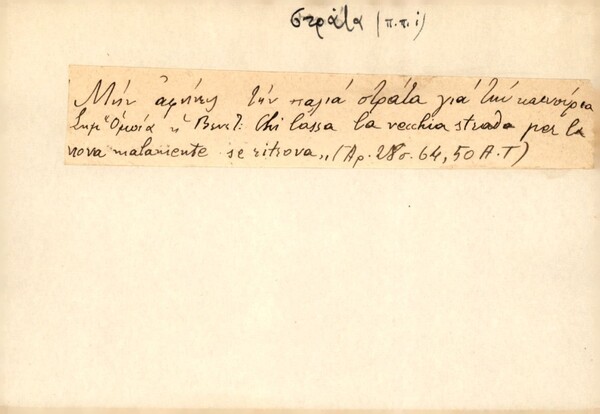 στράτα (π.π.ί)
Μήν ἀφήνῃς τήν παλιά στράτα γιά τήν καινούρια
Σημ. Ὁμοία ἡ Βενετ: Chi lassa la vecchia strada per la
nova malamente se ritrova,, (Ἀρ. 28 σ. 64, 50 Α.Τ)